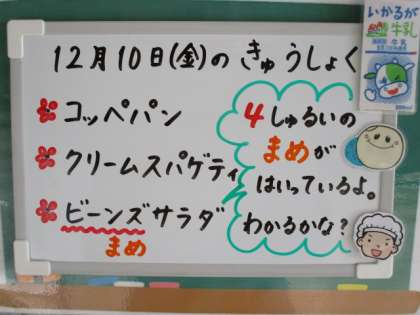 12月10日(金)の きゅうしょく
コッペパン
クリームスパゲティ
ビーンズサラダ
まめ
4しゅるいの
まめが
はいっているよ。
わかるかな?
いかるが
牛乳